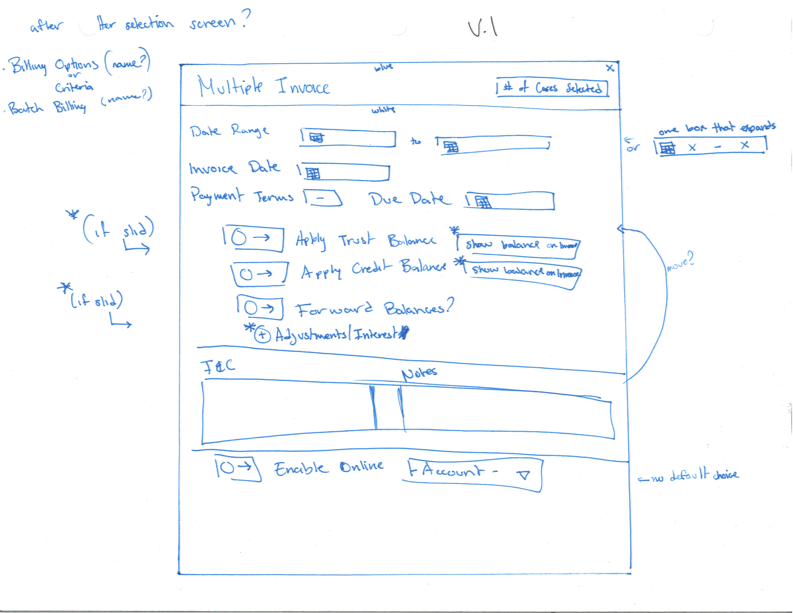 after the selection screen?
V.1
· Billing Options (name?)
or
Criteria
· Batch Billing (name?)
blue
x
Multiple Invoice
# of Cases Selected
white
Date Range
to
← or
one box that expands
x - x
Invoice Date
Payment Terms
-
Due Date
* (if slid)
O→ Apply Trust Balance
* show balance on invoice
O→ Apply Credit Balance
* show balance on invoice
move?
* (if slid)
O→ Forward Balances?
* + Adjustments/Interest
T&C
Notes
O→ Enable Online
- Account - ▽
← no default choice